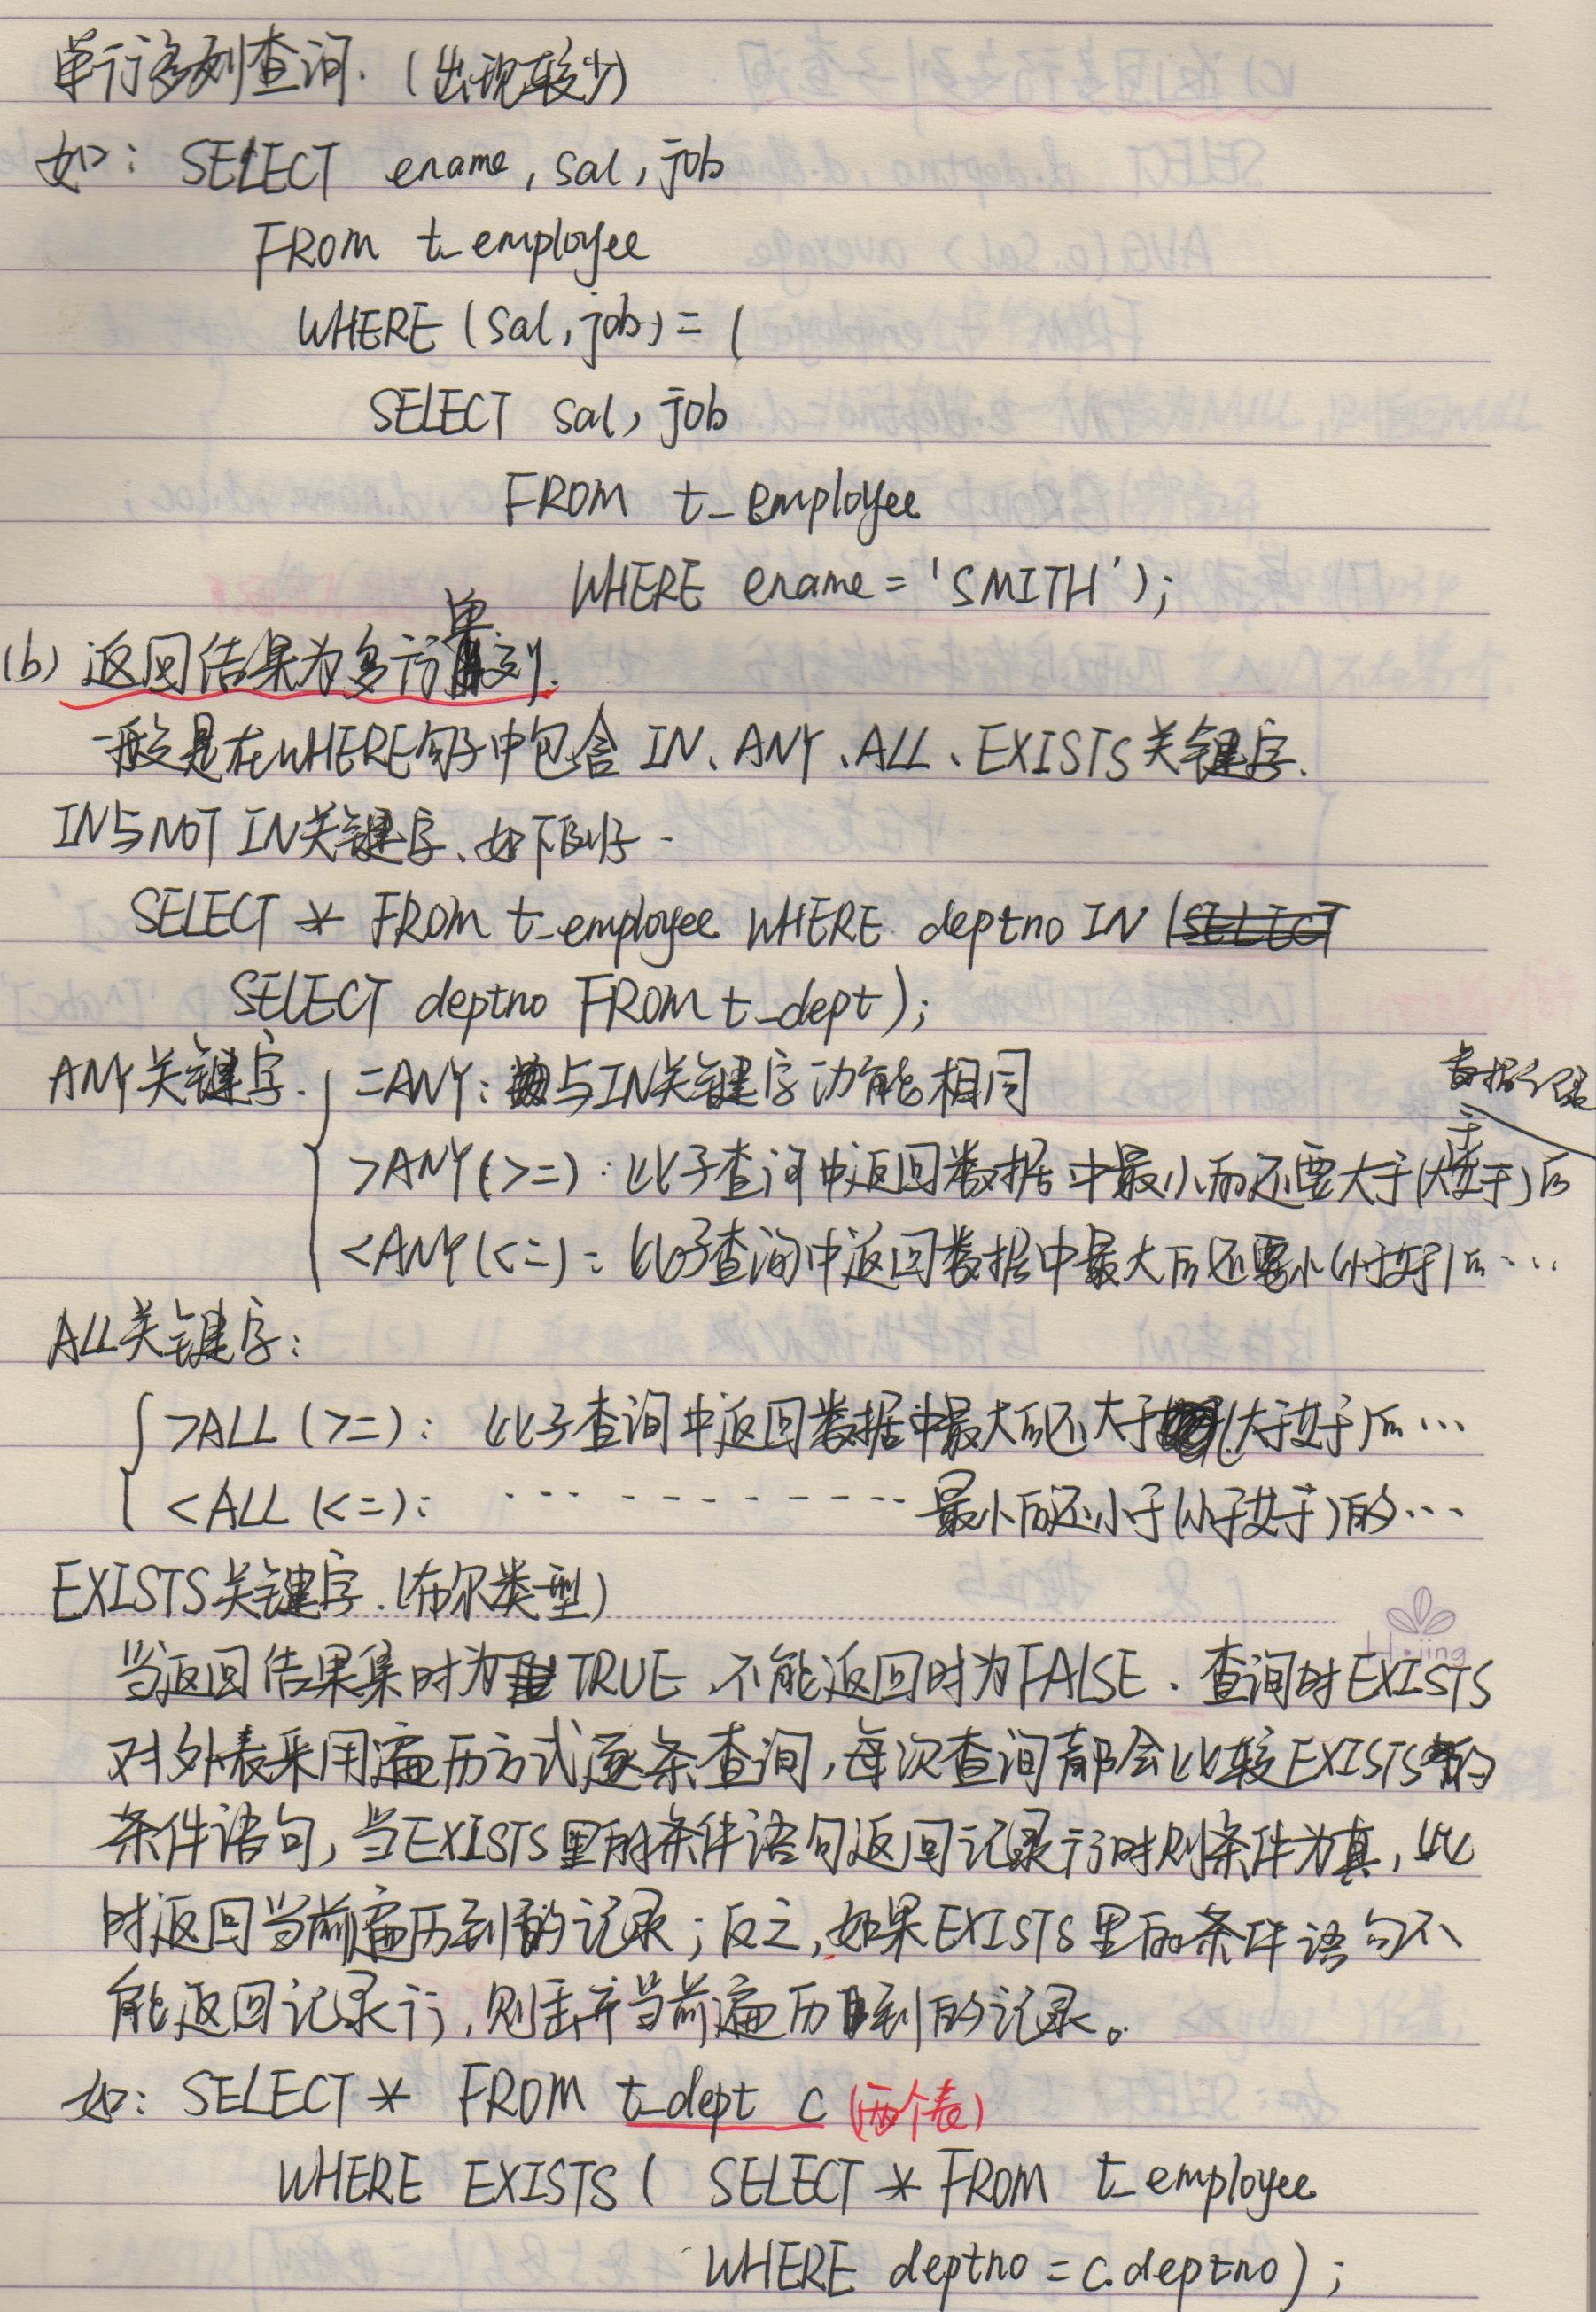 单行多列查询.（出现较少）
如: SELECT ename, sal, job
FROM t_employee
WHERE (sal, job) = (
SELECT sal, job
FROM t_employee
WHERE ename = 'SMITH');
(b) 返回结果为多行单列.
一般是在WHERE句子中包含 IN、ANY、ALL、EXISTS关键字.
IN与NOT IN关键字、如下例子.
SELECT * FROM t_employee WHERE deptno IN (
SELECT deptno FROM t_dept);
ANY关键字.
=ANY: 与IN关键字功能相同
数据记录
>ANY(>=): 比子查询中返回数据中最小的还要大于(大于等于)的
<ANY(<=): 比子查询中返回数据中最大的还要小(小于等于)的…
ALL关键字:
>ALL (>=): 比子查询中返回数据中最大的还大于(大于等于)的…
<ALL (<=): …………最小的还小于(小于等于)的…
EXISTS关键字.(布尔类型)
当返回结果集时为TRUE,不能返回时为FALSE. 查询时EXISTS
对外表采用遍历方式逐条查询,每次查询都会比较EXISTS的
条件语句,当EXISTS里的条件语句返回记录行时则条件为真,此
时返回当前遍历到的记录;反之,如果EXISTS里的条件语句不
能返回记录行,则丢弃当前遍历到的记录。
如: SELECT * FROM t_dept c (两个表)
WHERE EXISTS ( SELECT * FROM t_employee
WHERE deptno = c.deptno);